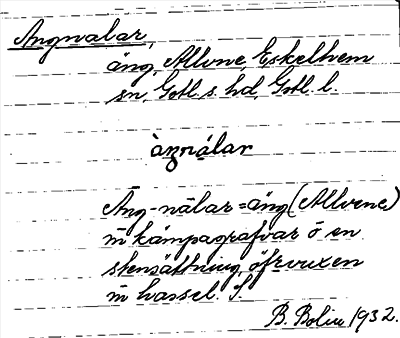 Angnalar,
äng, Allvne, Eskelhem
sn, Gotl. s. hd, Gotl. l.
àŋnálar
Äng-nälar = äng (Allvene)
m̄ kämpagrafvar o en
stensättning öfrvuxen
m̄ hassel.
B. Bolin 1932.